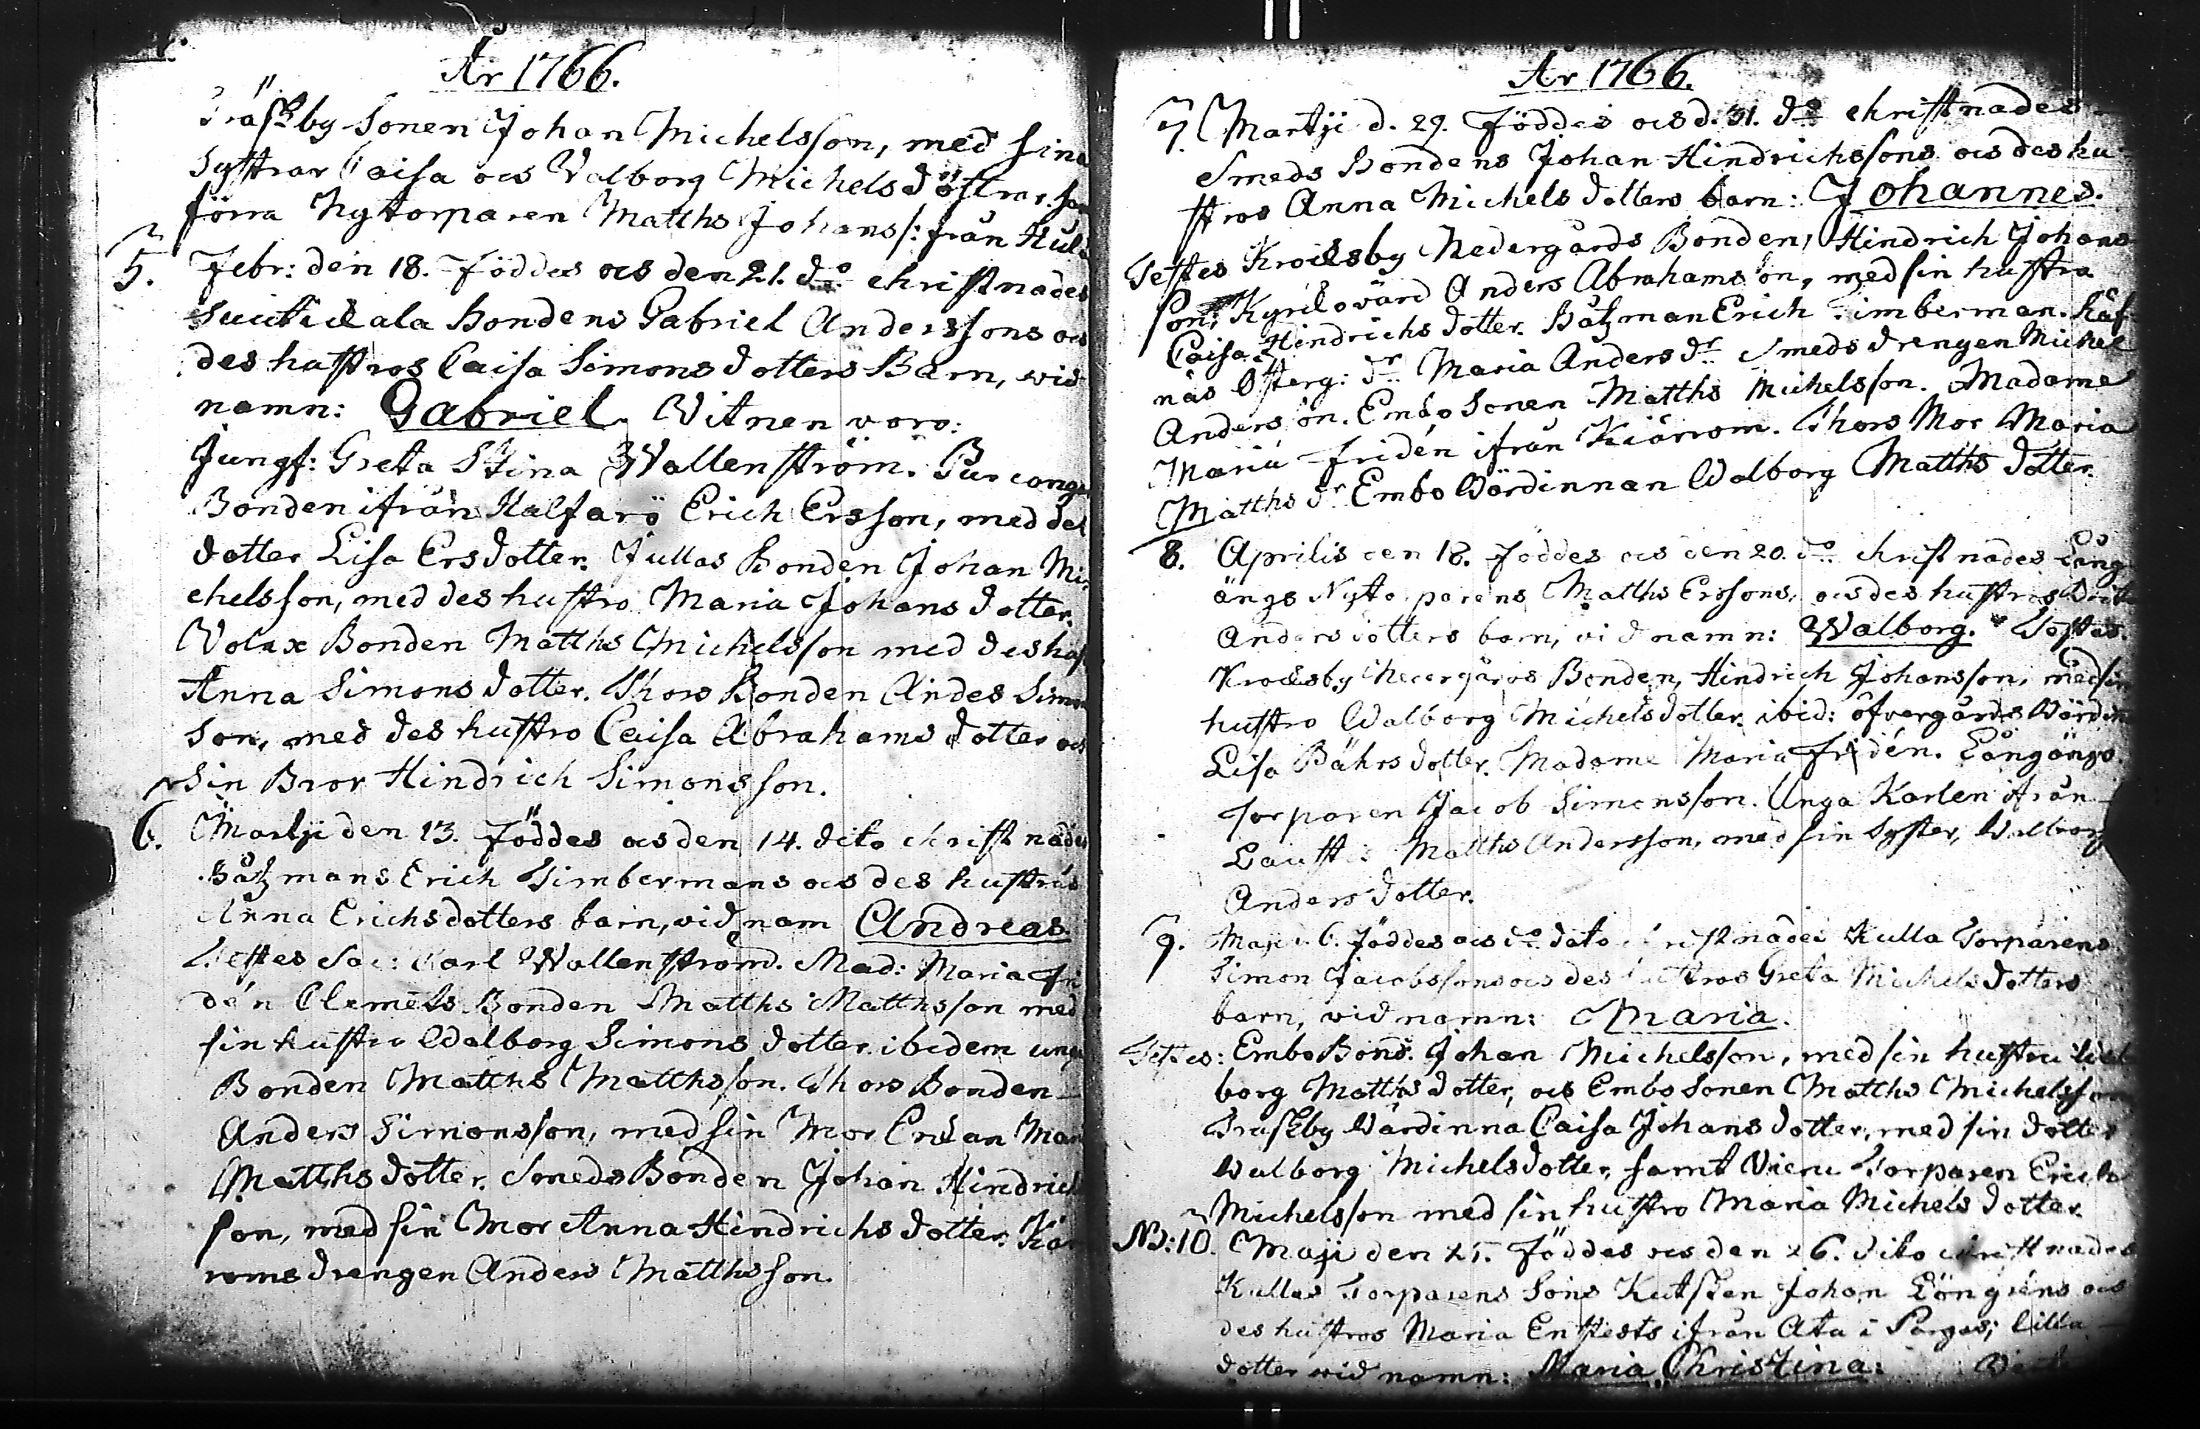 År 1766.
Träskby Sonen Johan Michelsson, med sina
Systrar Caisa ocs Valborg Michels döttrar. som
förra Nytorparen Matths Johanss: från Kul
5. Febr: den 18. Föddes ocs den 21. do christnades
Bondens Gabriel Anderssons ocs
des hustros Caisa Simons dotters Barn, wid
namn: Gabriel. Vitnen voro:
Jungf: Greta Stina Wallenström. Pur
Bonden ifrån Kalfarö Erich Ersson, med des
dotter Lisa Ersdotter. Jullas Bonden Johan Mi
chelsson, med des hustro Maria Johans dotter.
Volax Bonden Matths Michelsson med des hu
Anna Simons dotter. Thors Bonden Andes Simon
Son, med des hustro Caisa Abrahams dotter ocs
sin Bror Hindrich Simonsson.
6. Martji den 13. Föddes ocs den 14. dito christnades
Båtzmans Erich Timbermans ocs des hustrus
Anna Erichsdotters barn, vid nam Andreas
Testes Sac: Carl Wallenström. Mad: Maria Fri
dén Clemets Bonden Matths Matthsson med
sin hustru Walborg Simons dotter. ibidem unga
Bonden Matths Matthsson. Thors Bonden
Anders Simonsson, med sin Mor Enkan Mar
Matths dotter. Smeds Bonden Johan Hindrich
son, med sin Mor Anna Hindrichs dotter. Kär
roms drengen Anders Matthsson.
År 1766.
7. Martji d. 29. Föddes ocs d. 31. do christnades
Smeds Bondens Johan Hindrichssons ocs des hu
stros Anna Michels dotters barn: Johannes.
Testes Krocksby Nedergårds Bonden, Hindrich Johans
son, Kyrkovärd Anders Abrahamsson, med sin hustra
Caisa Hindrichs dotter. Båtzman Erich Timberman. Räf
näs Österg: dr Maria Anders dr Smeds drengen Michel
Andersson. Embo Sonen Matths Michelsson. Madame
Maria Fridén ifrån Kiärrom. Thors Mor Maria
Matths dr Embo Värdinnan Walborg Matths dotter.
8. Aprilis den 18. Föddes ocs den 20. do christnades Lång
ängs Nytorparens Matths Erssons, ocs des hustros Britta
Anders dotters barn, vid namn: Walborg. Testes.
Krocksby Nedergårds Bonden, Hindrich Johansson, med sin
hustro Walborg Michelsdotter. ibid: öfvergårds Värdin
Lisa Bährsdotter. Madame Maria Fridén. Långängs
Torparen Jacob Simonsson. Unga Karlen ifrån
Matths Andersson, med sin Syster, Walborg
Anders dotter.
9. Maji d. 6. Föddes ocs do dato christnades Kulla Torparens
Simon Jacobssons ocs des hustros Greta Michels dotters
barn, vid namn: Maria.
Testes: Embo Bond: Johan Michelsson, med sin hustru Wal
borg Matths dotter, ocs Embo Sonen Matths Michelsson
Träskby Värdinna Caisa Johans dotter, med sin dotter
Walborg Michelsdotter, samt Torparen Erich
Michelsson med sin hustro Maria Michels dotter.
No: 10. Maji den 25. Föddes ocs den 26. dito christnades
Kullas Torparens Sons Kutsken Johan Löngréns ocs
des hustros Maria ifrån Ata i Pargas; lilla
dotter wid namn: Maria Christina: